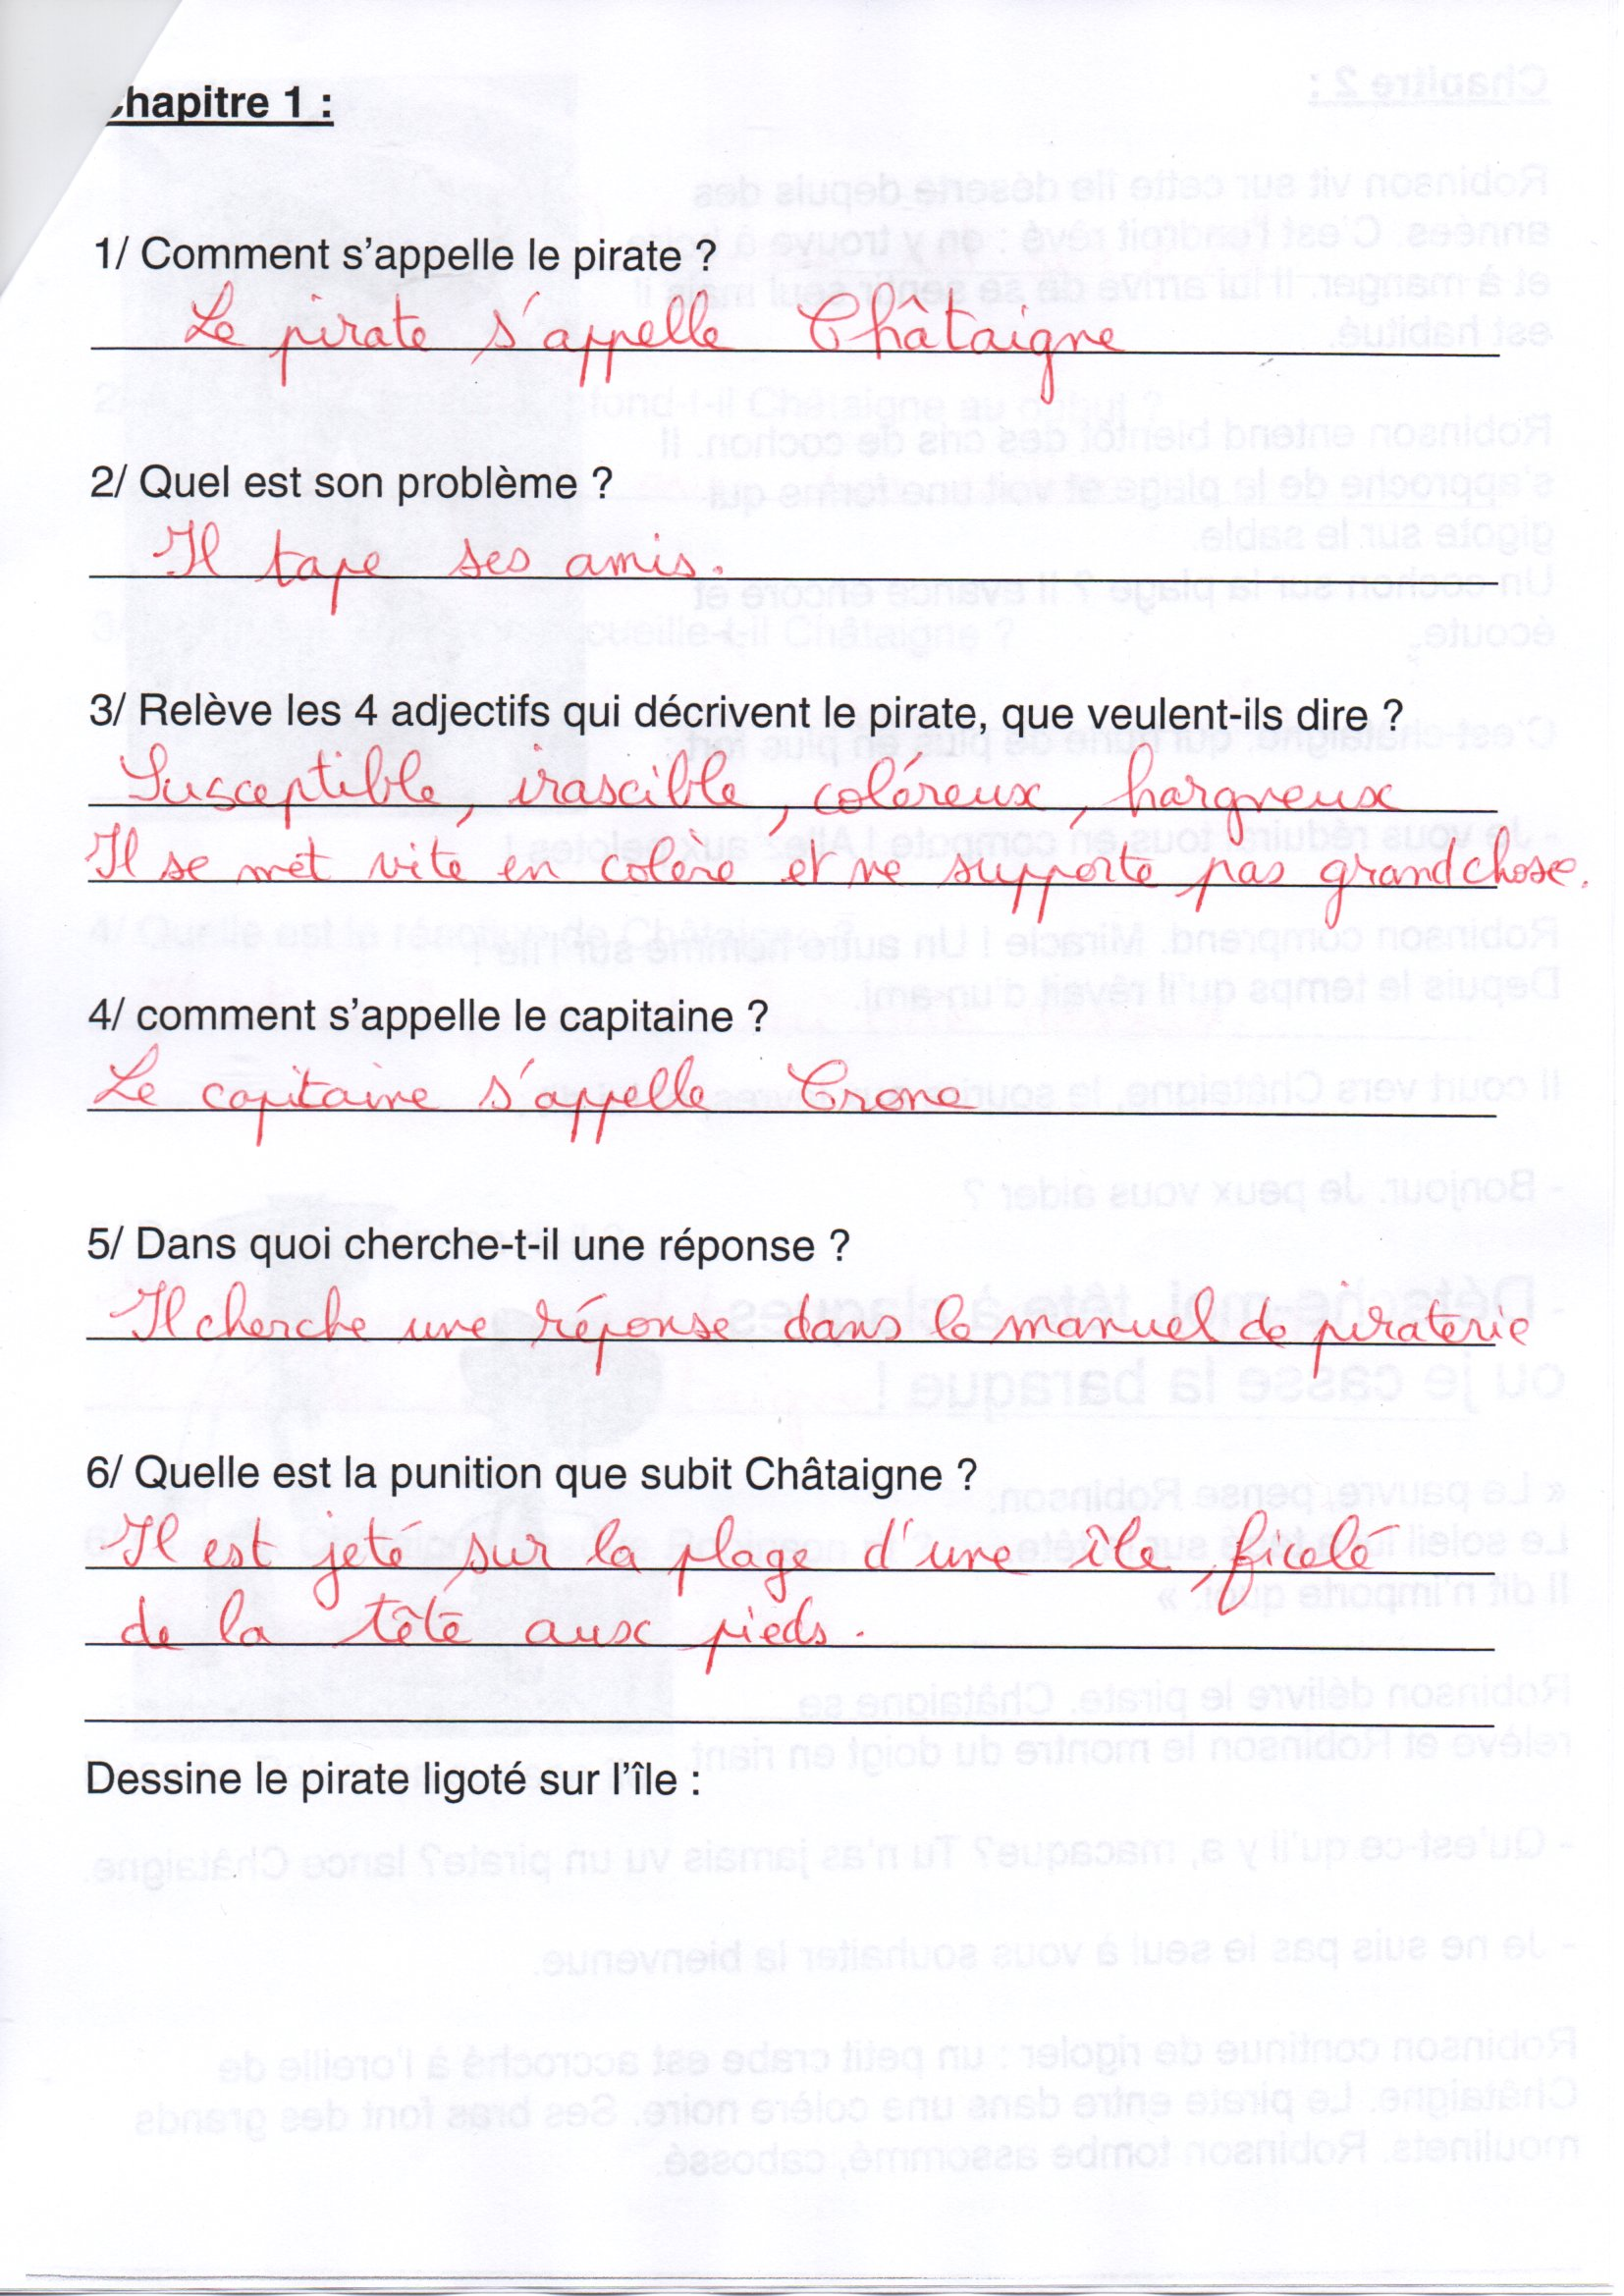 hapitre 1 :
1/ Comment s'appelle le pirate ?
Le pirate s'appelle Châtaigne
2/ Quel est son problème ?
Il tape ses amis.
3/ Relève les 4 adjectifs qui décrivent le pirate, que veulent-ils dire ?
Susceptible, irascible, coléreux, hargneux
Il se met vite en colère et ne supporte pas grand chose.
4/ comment s'appelle le capitaine ?
Le capitaine s'appelle Crone
5/ Dans quoi cherche-t-il une réponse ?
Il cherche une réponse dans le manuel de piraterie
6/ Quelle est la punition que subit Châtaigne ?
Il est jeté sur la plage d'une île, ficelé
de la tête aux pieds.
Dessine le pirate ligoté sur l'île :